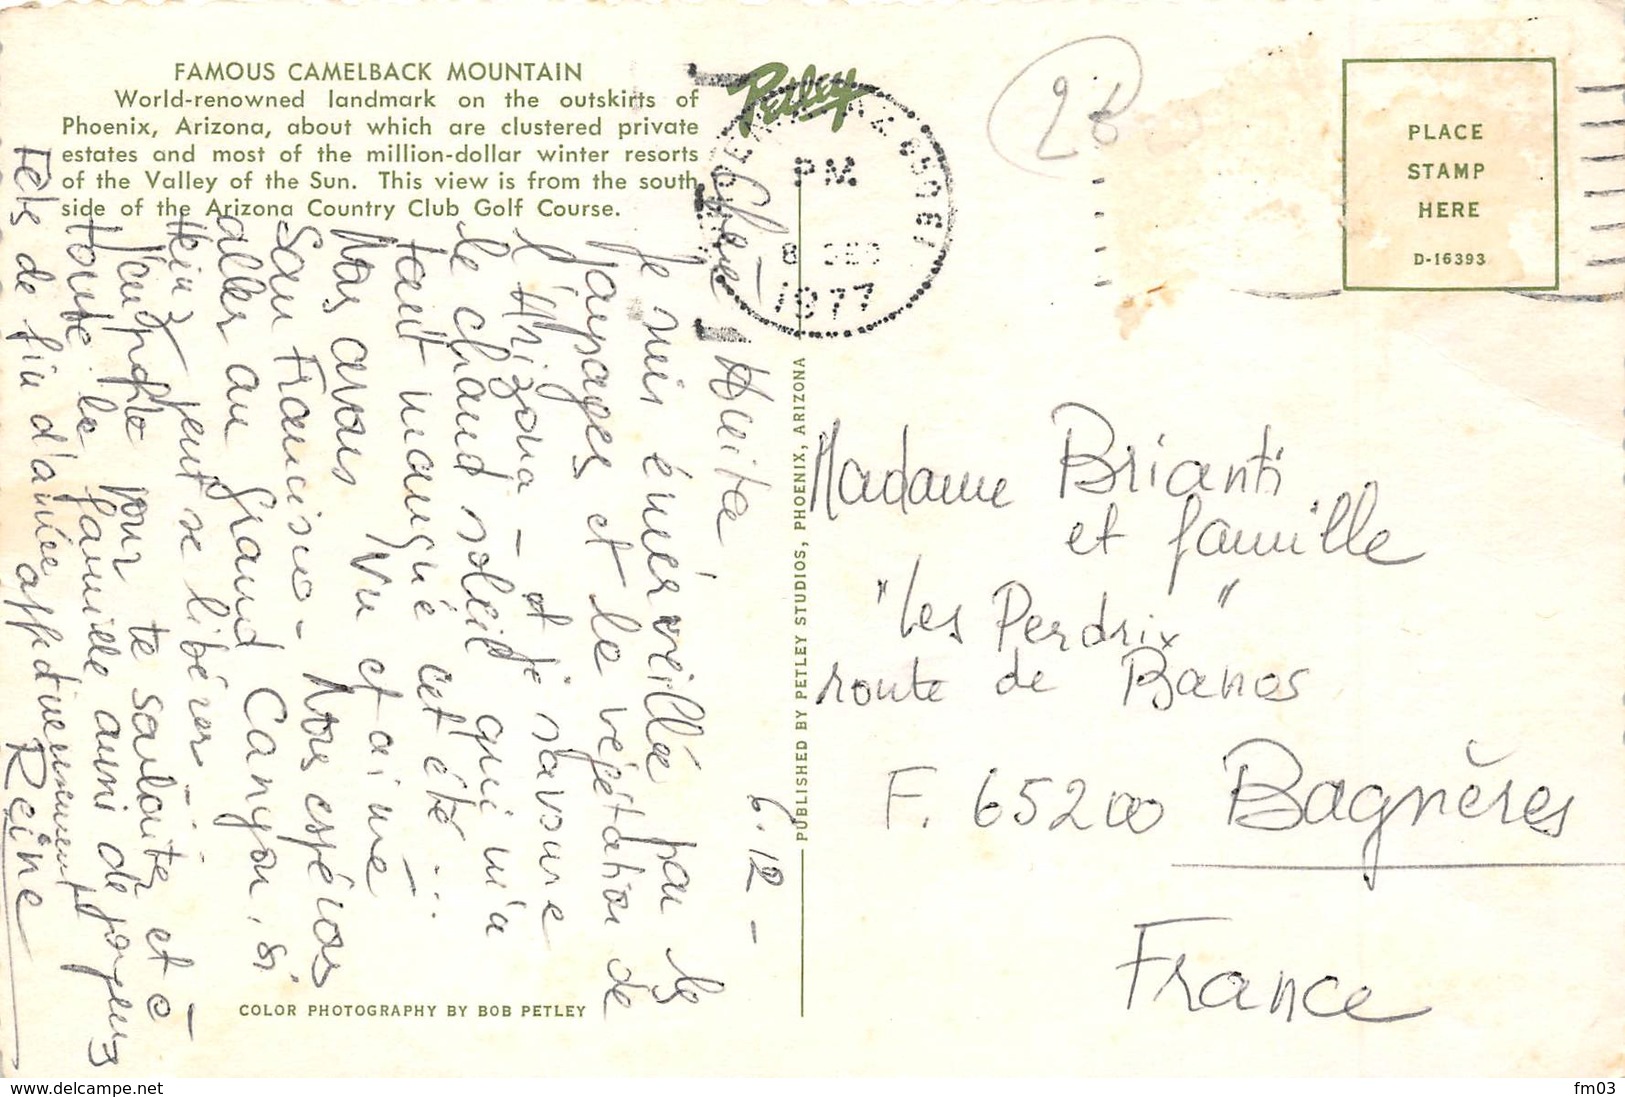 FAMOUS CAMELBACK MOUNTAIN
World-renowned landmark on the outskirts of
Phoenix, Arizona, about which are clustered private
estates and most of the million-dollar winter resorts
of the Valley of the Sun. This view is from the south
side of the Arizona Country Club Golf Course.
Petley
PM
8 DEC
1977
AZ 85026
26
PLACE
STAMP
HERE
D-16393
6.12 -
Chère
Je suis émerveillé par les
paysages et la végétation de
l'Arizona - et je savoure
le chaud soleil qui m'a
tant manqué cet été...
Nous avons vu et aimé
San Francisco - Nous espérons
aller au Grand Canyon, si
Heinz peut se libérer -
J'en profite pour te souhaiter et à
toute la famille aussi de joyeuses
Fêtes de fin d'année
affectueusement
Reine
PUBLISHED BY PETLEY STUDIOS, PHOENIX, ARIZONA
COLOR PHOTOGRAPHY BY BOB PETLEY
Madame Brianti
et famille
"Les Perdrix"
route de Banos
F. 65200 Bagnères
France
www.delcampe.net
fm03